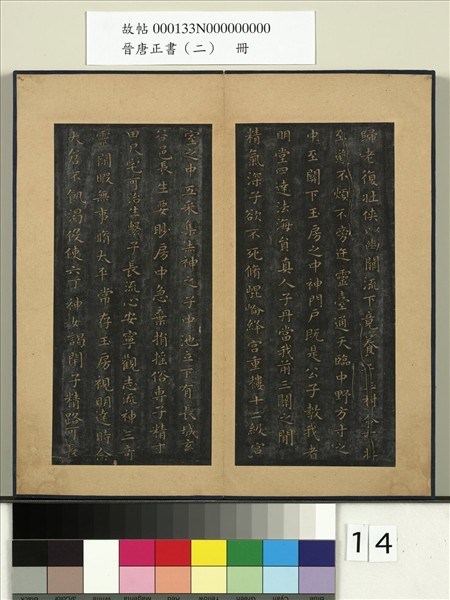 故帖 000133N000000000
晉唐正書（二） 冊
歸老復壯俠以幽闕流下竟養子玉樹
至道不煩不旁迕靈臺通天臨中野方寸之
中至關下玉房之中神門戶既是公子教我者
明堂四達法海員真人子丹當我前三關之間
精氣深子欲不死脩崐崘絳宮重樓十二級宮
室之中五采集赤神之子中池立下有長城玄
谷邑長生要眇房中急棄捐搖俗專子精寸
田尺宅可治生繫子長流心安寧觀志流神三奇
靈閒暇無事脩太平常存玉房視明達時念
大倉不飢渴俊使六丁神女謁閉子精路可長
14
Black
3/Color
White
Magenta
Red
Yellow
Green
Cyan
Blue